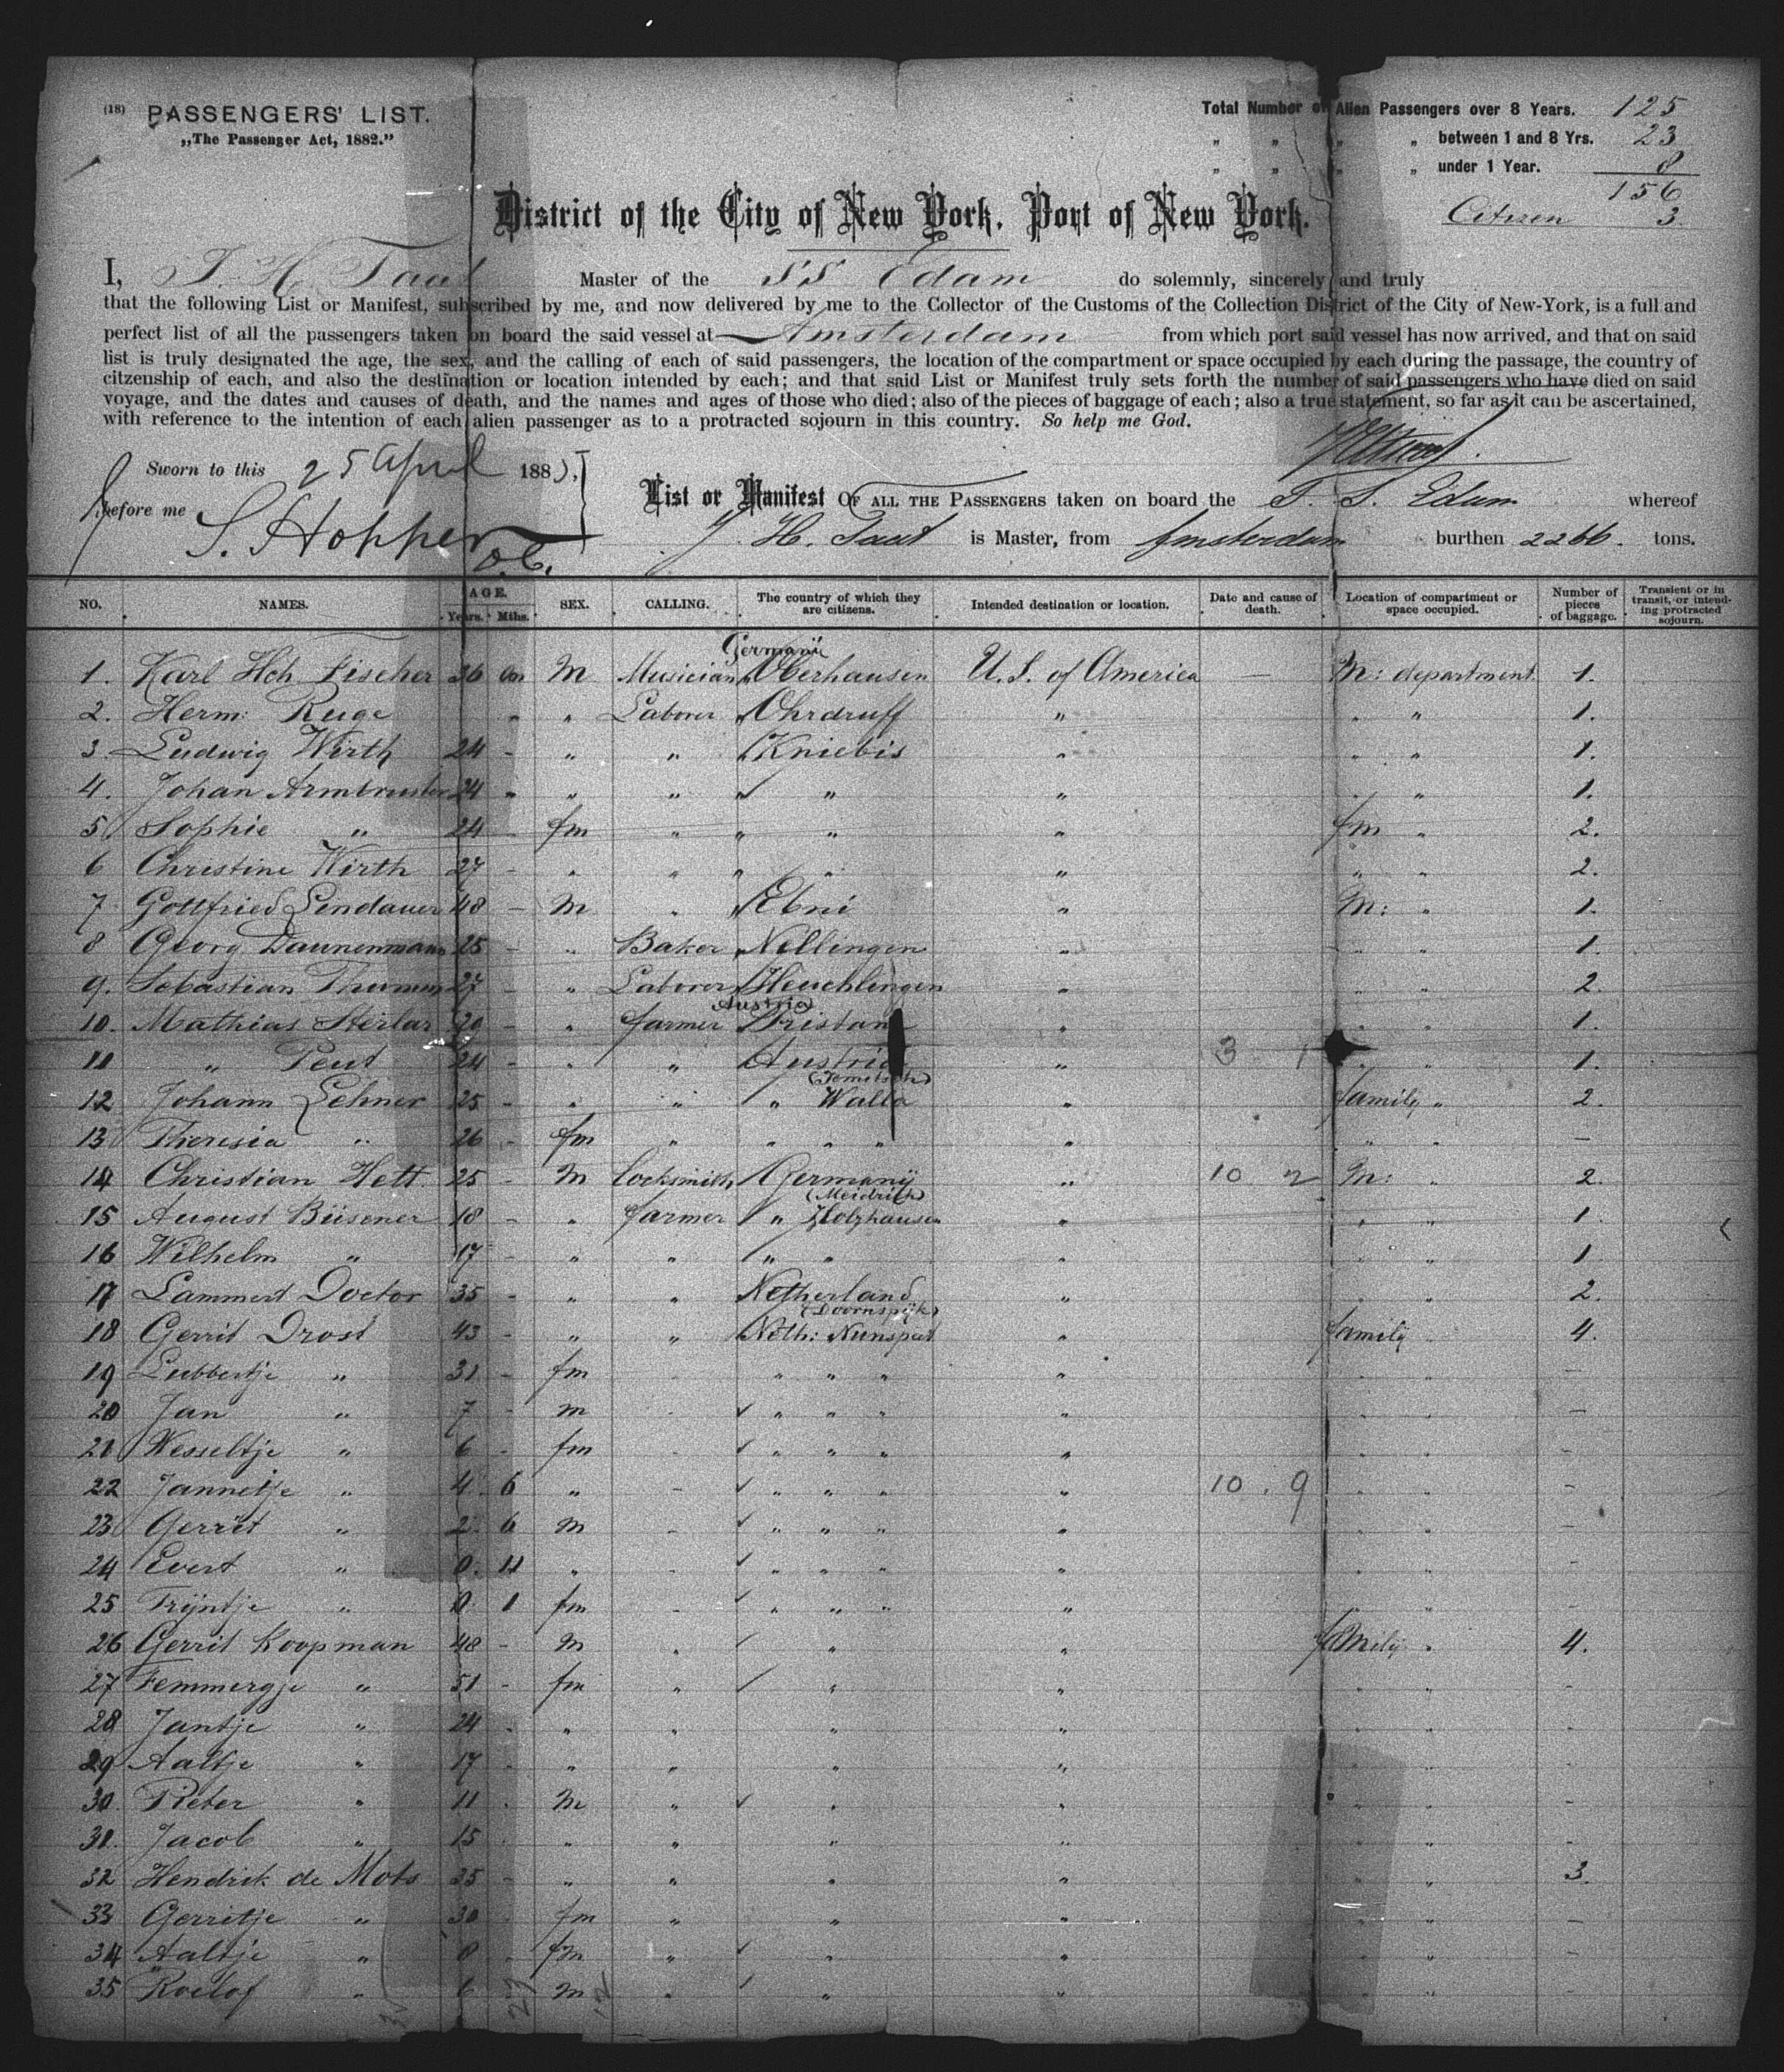 (18) PASSENGERS' LIST.
„The Passenger Act, 1882."
Total Number of Alien Passengers over 8 Years. 125
„ „ „ „ between 1 and 8 Yrs. 23
„ „ „ „ under 1 Year. 8
156
Citizen 3.
District of the City of New York, Port of New York.
I, J. H. Taat Master of the SS Edam do solemnly, sincerely and truly
that the following List or Manifest, subscribed by me, and now delivered by me to the Collector of the Customs of the Collection District of the City of New-York, is a full and
perfect list of all the passengers taken on board the said vessel at Amsterdam from which port said vessel has now arrived, and that on said
list is truly designated the age, the sex, and the calling of each of said passengers, the location of the compartment or space occupied by each during the passage, the country of
citzenship of each, and also the destination or location intended by each; and that said List or Manifest truly sets forth the number of said passengers who have died on said
voyage, and the dates and causes of death, and the names and ages of those who died; also of the pieces of baggage of each; also a true statement, so far as it can be ascertained,
with reference to the intention of each alien passenger as to a protracted sojourn in this country. So help me God.
Sworn to this 25 April 188
before me S. Hopper
D.C.
List or Manifest OF ALL THE PASSENGERS taken on board the S. S. Edam whereof
J. H. Taat is Master, from Amsterdam burthen 2266. tons.
NO. NAMES. AGE. Years. Mths. SEX. CALLING. The country of which they are citizens. Intended destination or location. Date and cause of death. Location of compartment or space occupied. Number of pieces of baggage. Transient or in transit, or intending protracted sojourn.
Germanÿ
1. Karl Hch Fischer 36 M Musician „ Oberhausen U.S. of America — M: department 1.
2. Herm: Ruge „ „ Laborer „ Ohrdruff „ „ „ 1.
3. Ludwig Wirth 24 - „ „ „ Kniebis „ „ „ 1.
4. Johan Armbruster 24 „ „ „ „ „ „ „ 1.
5 Sophie „ 24 - fm „ „ „ „ fm „ 2.
6 Christine Wirth 27 - „ „ „ „ „ „ „ 2.
7 Gottfried Lendauer 48 - M „ „ Ebni „ M: „ 1.
8 Georg Daunenmann 25 - „ Baker „ Nellingen „ „ „ 1.
9. Sebastian 27 - „ Laborer „ Heuchlingen „ „ „ 2.
Austria
10. Mathias Sterlar 20 - „ farmer Tristan „ „ „ 1.
11 „ Peut 24 - „ „ Austria „ 3 1 „ „ 1.
12 Johann Lehner 25 - „ „ „ Walla „ family „ 2.
13 Theresia „ 26 - fm „ „ „ „ „ „ „ —
14 Christian Hett. 25 - M Locksmith Germanÿ „ 10 2 M: „ 2.
(Meidrich)
15 August Büsener 18 - „ farmer „ Holzhausen „ „ „ 1.
16 Wilhelm „ 17 - „ „ „ „ „ „ „ 1.
17 Lammert Doctor 35 - „ „ Netherland „ „ „ 2.
(Doornspijk)
18 Gerrit Drost 43 - „ „ Neth: Nunspeet „ family „ 4.
19 Lubbertje „ 31 - fm - „ „ „ „ „ „ —
20 Jan „ 7 - m - „ „ „ „ „ „ —
21 Wesseltje „ 6 - fm - „ „ „ „ „ „ -
22 Jannetje „ 4 6 „ - „ „ „ „ 10. 9 „ „ -
23 Gerrit „ 2 6 M - „ „ „ „ „ „ -
24 Evert „ 0. 11 „ - „ „ „ „ „ „ -
25 Trijntje „ 0 1 fm - „ „ „ „ „ „ -
26 Gerrit Koopman 48 - M „ „ „ family „ 4.
27 Femmergje „ 51 - fm „ „ „ „ „ -
28 Jantje „ 24 - „ „ „ „ „ „ -
29 Aaltje „ 17 - „ „ „ „ „ „ -
30. Pieter „ 11 - M „ „ „ „ „ -
31. Jacob „ 15 - „ „ „ „ „ „ -
32 Hendrik de Mots 35 - „ „ „ „ „ „ 3.
33 Gerritje „ 30 - fm „ „ „ „ „ —
34 Aaltje „ 8 - fm „ „ „ „ „ -
35 Roelof „ 6 M „ „ „ „ „ -
27 12